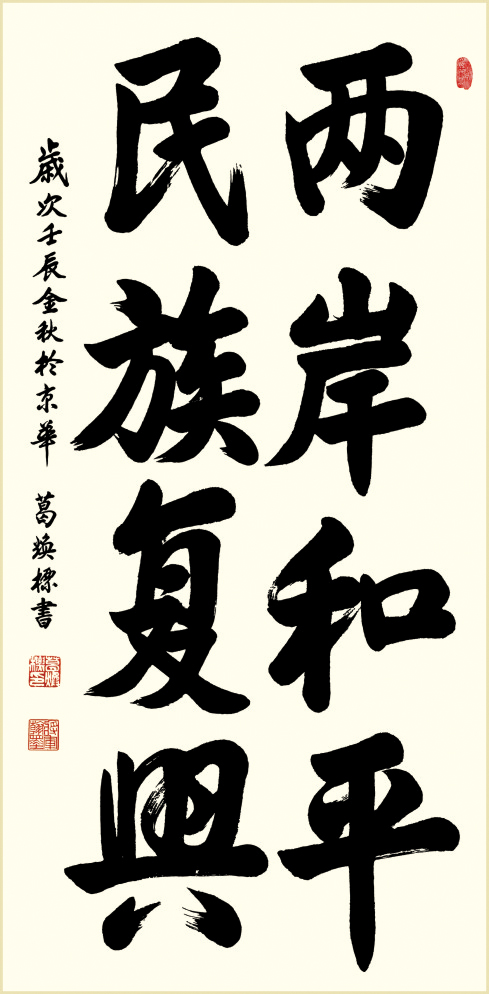 两岸和平
民族复興
歲次壬辰金秋於京華 葛煥標書